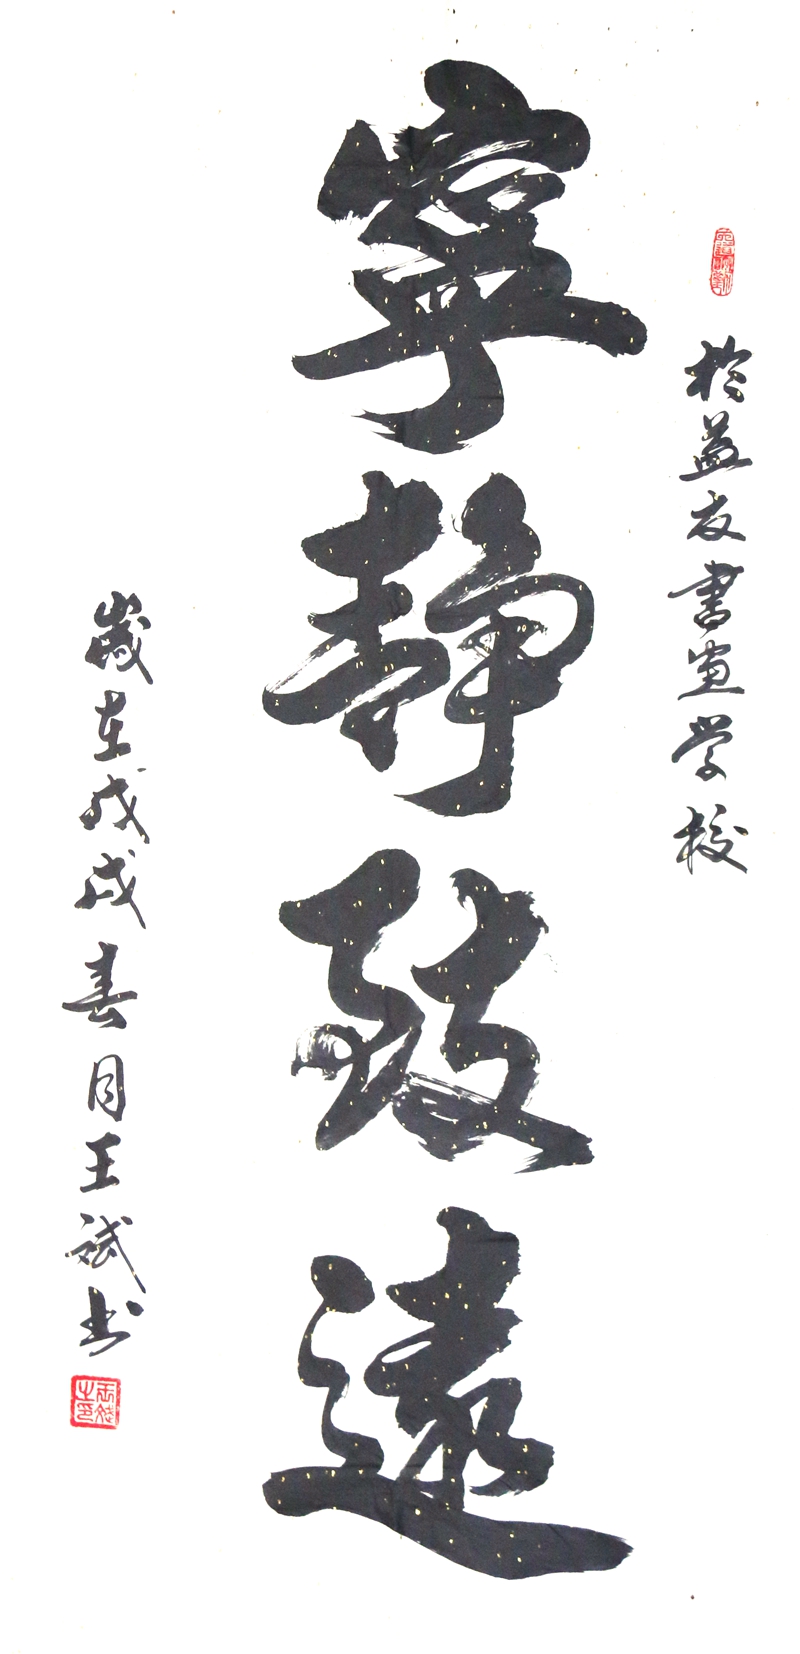 於益友書畫学校
寧靜致遠
歲在戊戌春月王斌书